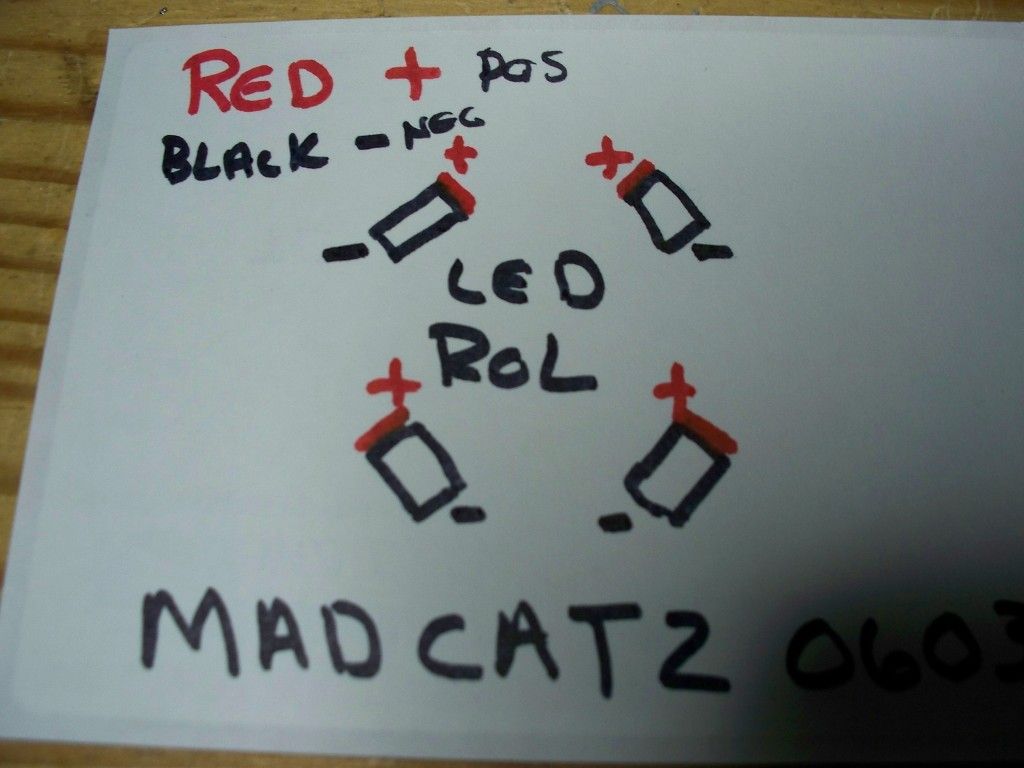 RED + POS
BLACK - NEG
+ +
- -
LED
ROL
+ +
- -
MADCATZ 0603